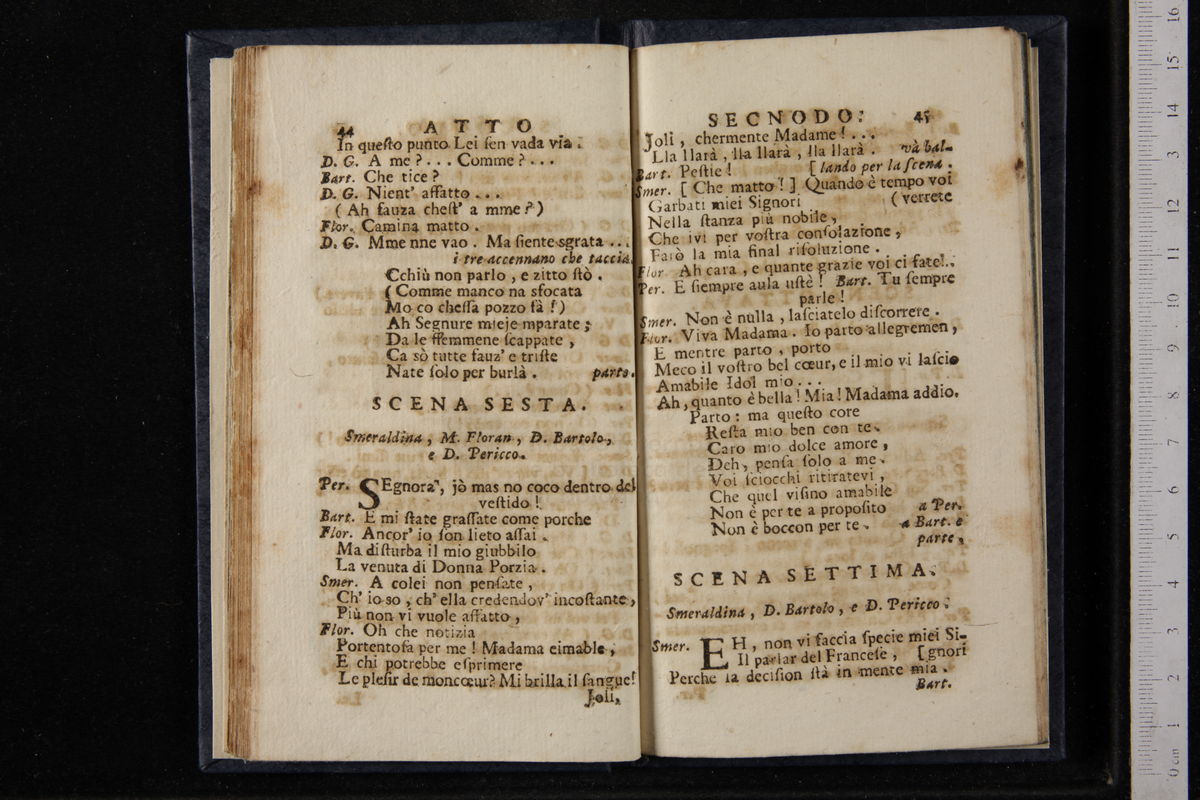 44 ATTO
In queſto punto Lei ſen vada via.
D. G. A me?... Comme?...
Bart. Che tice?
D. G. Nient' affatto...
(Ah fauza cheſt' a mme?)
Flor. Camina matto.
D. G. Mme nne vao. Ma ſiente sgrata...
i tre accennano che taccia.
Cchiù non parlo, e zitto ſtò.
(Comme manco na sfocata
Mo co cheſſa pozzo fà!)
Ah Segnure mieje mparate;
Da le ffemmene ſcappate,
Ca sò tutte fauz' e triſte
Nate ſolo per burlà. parte.
SCENA SESTA.
Smeraldina, M. Floran, D. Bartolo,
e D. Pericco.
Per. SEgnora, jò mas no coco dentro del
veſtido!
Bart. E mi ſtate graſſate come porche
Flor. Ancor' io ſon lieto aſſai.
Ma diſturba il mio giubbilo
La venuta di Donna Porzia.
Smer. A colei non penſate,
Ch' io so, ch' ella credendov' incoſtante,
Più non vi vuole affatto,
Flor. Oh che notizia
Portentoſa per me! Madama eimable,
E chi potrebbe eſprimere
Le pleſir de moncœur? Mi brilla il ſangue!
Joli,
SECNODO. 45
Joli, chermente Madame!...
Lla llarà, lla llarà, lla llarà. và bal-
Bart. Peſtie! [lando per la ſcena.
Smer. [Che matto!] Quando è tempo voi
Garbati miei Signori (verrete
Nella ſtanza più nobile,
Che ivi per voſtra conſolazione,
Farò la mia final riſoluzione.
Flor. Ah cara, e quante grazie voi ci fate!.
Per. E ſiempre aula uſtè! Bart. Tu ſempre
parle!
Smer. Non è nulla, laſciatelo diſcorrere.
Flor. Viva Madama. Io parto allegremen,
E mentre parto, porto
Meco il voſtro bel cœur, e il mio vi laſcio
Amabile Idol mio...
Ah, quanto è bella! Mia! Madama addio.
Parto: ma queſto core
Reſta mio ben con te.
Caro mio dolce amore,
Deh, penſa ſolo a me.
Voi ſciocchi ritiratevi,
Che quel viſino amabile
Non è per te a propoſito a Per.
Non è boccon per te. a Bart. e
parte.
SCENA SETTIMA.
Smeraldina, D. Bartolo, e D. Pericco.
Smer. EH, non vi faccia ſpecie miei Si-
Il parlar del Franceſe, [gnori
Perche la deciſion ſtà in mente mia.
Bart.